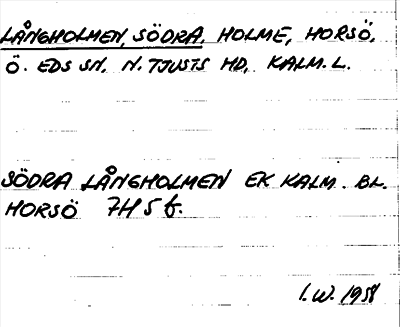 LÅNGHOLMEN, SÖDRA. HOLME, HORSÖ,
Ö. EDS SN, N. TJUSTS HD, KALM. L.
SÖDRA LÅNGHOLMEN EK KALM. BL.
HORSÖ 7H 5 f.
I.W. 1958